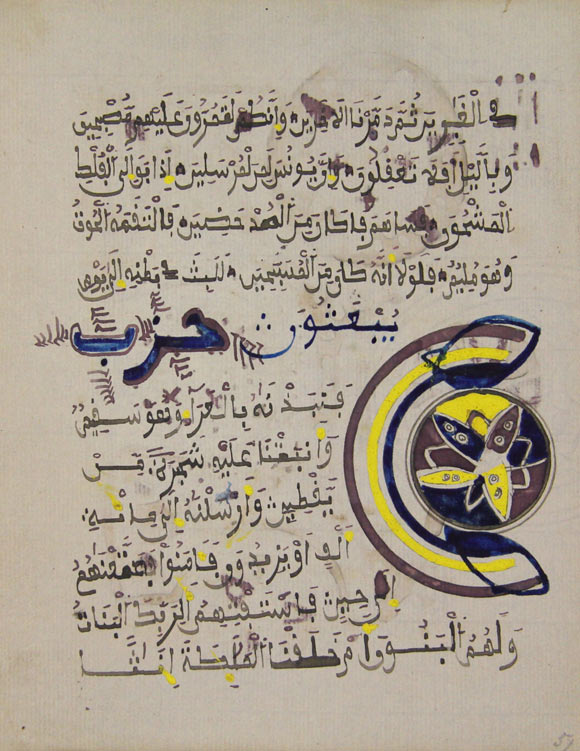 في الغبرين ثم دمرنا الاخرين وانكم لتمرون عليهم مصبحين
وباليل افلا تعقلون وان يونس لمن المرسلين اذ ابق الى الفلك
المشحون فساهم فكان من المدحضين فالتقمه الحوت
وهو مليم فلولا انه كان من المسبحين للبث في بطنه الى يوم
يبعثون حزب
فنبذنه بالعراء وهو سقيم
وانبتنا عليه شجرة من
يقطين وارسلنه الى مائة
الف او يزيدون فامنوا فمتعنهم
الى حين فاستفتهم الربك البنات
ولهم البنون ام خلقنا الملئكة انثا